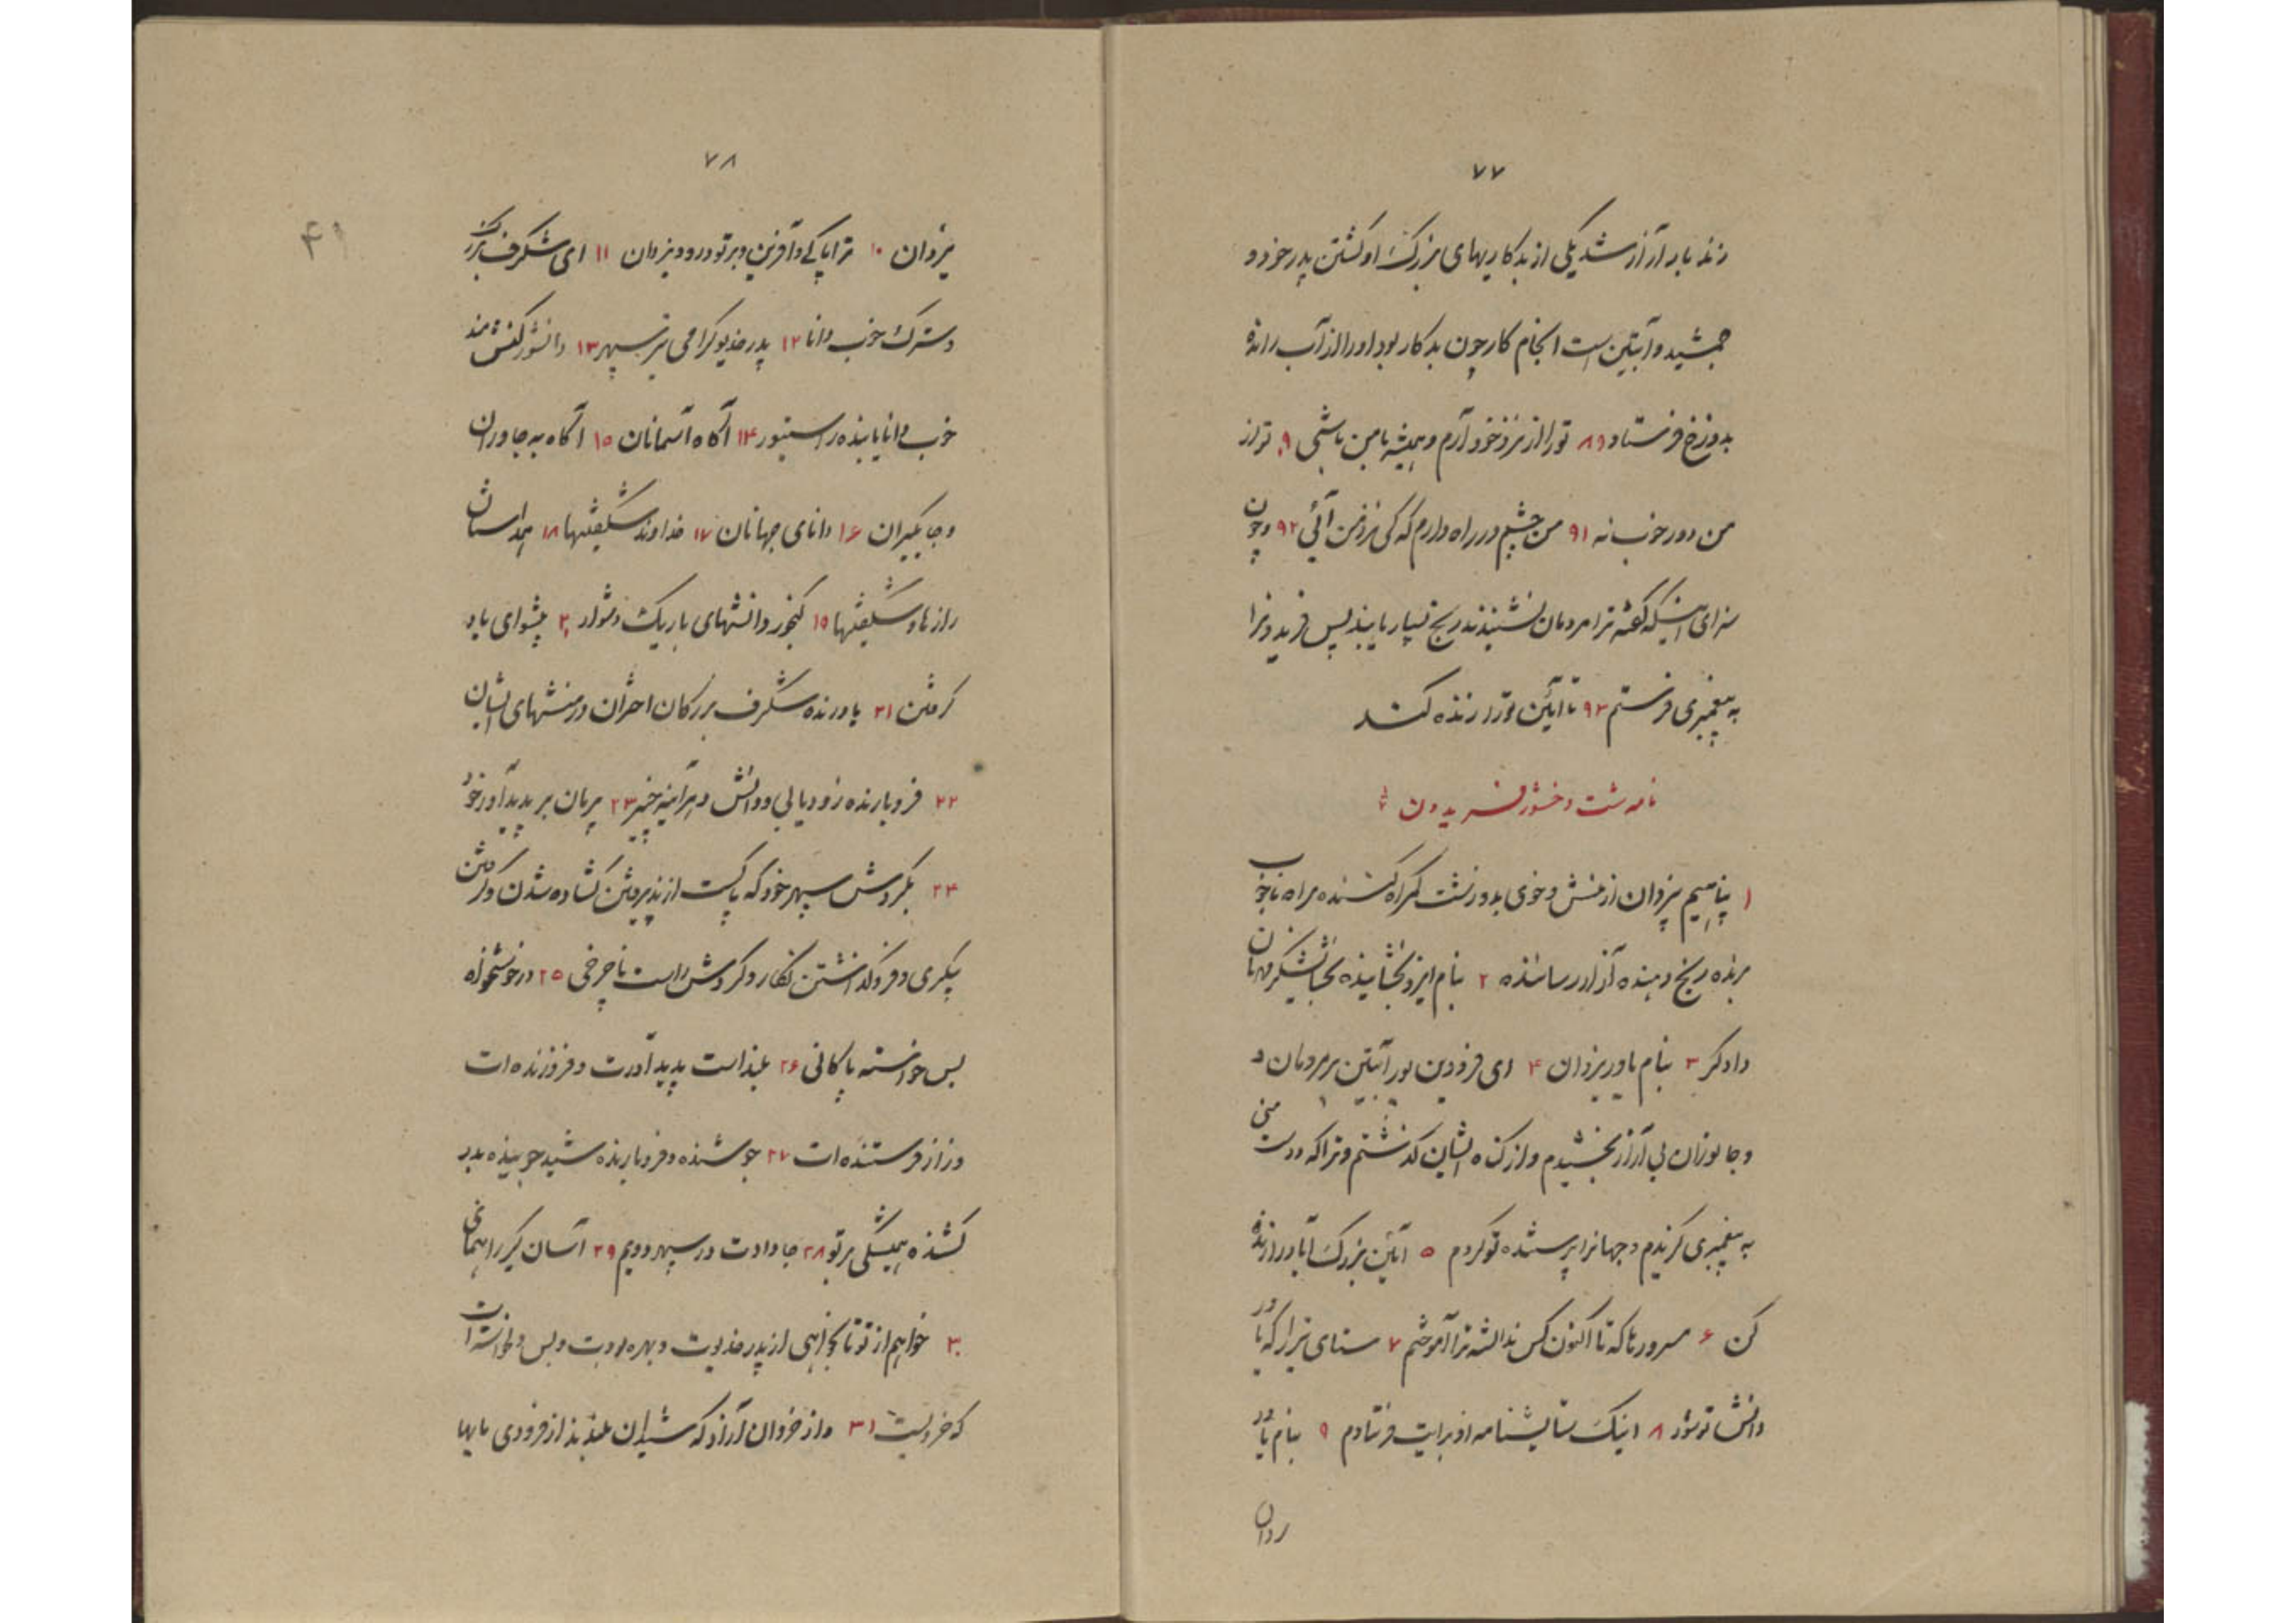 ۷۷
زند بار آزار شد یکی از بدکاریهای بزرگ او کشتن پدر خود و
جمشید و آبتین است انجام کار چون بدکار بود او را از آب رانده
بدوزخ فرستاد ۸۹ تو را از نزد خود آرم و همیشه با من باشی ۹۰ تو از
من دور خوب نه ۹۱ من چشم در راه دارم که کی نزد من آئی ۹۲ و چون
سزای اینکه گفته ترا مردمان نشنیدند رنج بسیار یابند پس فریدونرا
به پیغمبری فرستم ۹۳ تا آئین تو را زنده کند
نامه شت وخشور فریدون
۱ پناهیم بیزدان از منش و خوی بد و زشت گمراه کننده براه ناخوب
برنده رنج دهنده آزار رساننده ۲ بنام ایزد بخشاینده بخشایشگر مهربان
دادگر ۳ بنام یاور یزدان ۴ ای فریدون پور آبتین بر مردمان و
و جانوران بی آزار بخشیدم و از گناه ایشان گذشتم و ترا که دوست منی
به پیغمبری گزیدم و جهانرا پرستنده تو کردم ۵ آئین بزرگ آباد را زنده
کن ۶ سرورها که تا اکنون کس ندانسته ترا آموختم ۷ ستای تیر را که یاور
دانش تو شود ۸ اینک ستایشنامه از برایت فرستادم ۹ بنام یاور
۷۸
یزدان ۱۰ ترا پاکی و آفرین و بر تو درود یزدان ۱۱ ای شگرف بزرگ
و سترک خوب دانا ۱۲ پدر خدیو گرامی تیر سپهر ۱۳ دانشور کنش مند
خوب دانا یابنده راستینور ۱۴ آگاه آسمانان ۱۵ آگاه به جاوران
و جایگیران ۱۶ دانای جهانان ۱۷ خداوند شگفتیها ۱۸ همداستان
رازها و شگفتیها ۱۹ گنجور دانشهای باریک دشوار ۲۰ پیشوای یاد
گرفتن ۲۱ یاورنده شگرف بزرگان اختران در منشهای ایشان
۲۲ فرو بارنده زود یابی و دانش و هر آینه چیز ۲۳ فرمان بر پدید آور خود
۲۴ بگردش سپهر خود که پاکست از پذیرفتن گشاده شدن و گرفتن
پیکری و فرو گذاشتن نگار و گردش راست ناچرخی ۲۵ در خوشخواه
بس خواسته پاکانی ۲۶ بلند است پدید آورت و فروزنده ات
و راز فرستنده ات ۲۷ جوشنده و فرو بارنده شید چو بیننده بدر
کشنده همیشگی بر تو ۲۸ جا دادت در سپهر دویم ۲۹ آسان گیر راهنمای
۳۰ خواهم از تو تا بخواهی از پدر خدیوت و بهره بودت و بس و خواسته ات
که خرد است ۳۱ و از خردان آزاد که شیدان بلندند از فرودی مایها